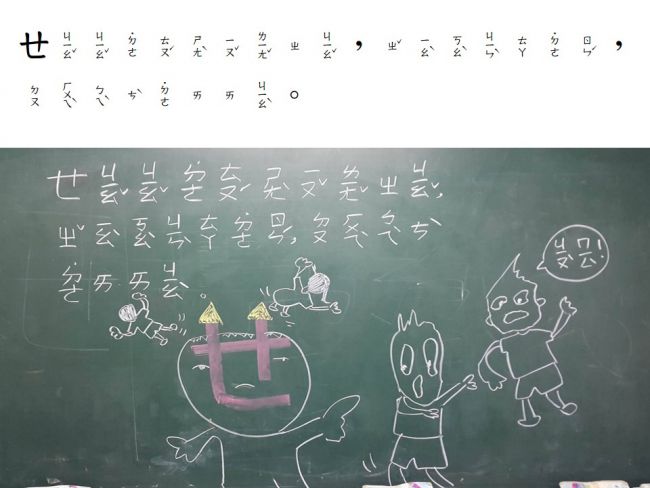 ㄝ ㄐㄧㄠˇ ㄐㄧㄠˇ ˙ㄉㄜ ㄊㄡˊ ㄕㄤˋ ㄧㄡˇ ㄌㄧㄤˇ ㄓ ㄐㄧㄠˇ，ㄓˇ ㄧㄠˋ ㄎㄠˋ ㄐㄧㄣˋ ㄊㄚ ˙ㄉㄜ ㄖㄣˊ，
ㄉㄡ ㄏㄨㄟˋ ㄅㄟˋ ㄘˋ ˙ㄉㄜ ㄞ ㄞ ㄐㄧㄠˋ。
ㄝ ㄐㄧㄠˇ ㄐㄧㄠˇ ˙ㄉㄜ ㄊㄡˊ ㄕㄤˋ ㄧㄡˇ ㄌㄧㄤˇ ㄓ ㄐㄧㄠˇ，
ㄓˇ ㄧㄠˋ ㄎㄠˋ ㄐㄧㄣˋ ㄊㄚ ˙ㄉㄜ ㄖㄣˊ，ㄉㄡ ㄏㄨㄟˋ ㄅㄟˋ ㄘˋ
˙ㄉㄜ ㄞ ㄞ ㄐㄧㄠˋ。
ㄐㄧㄡˋ ㄇㄧㄥˋ!
ㄝ